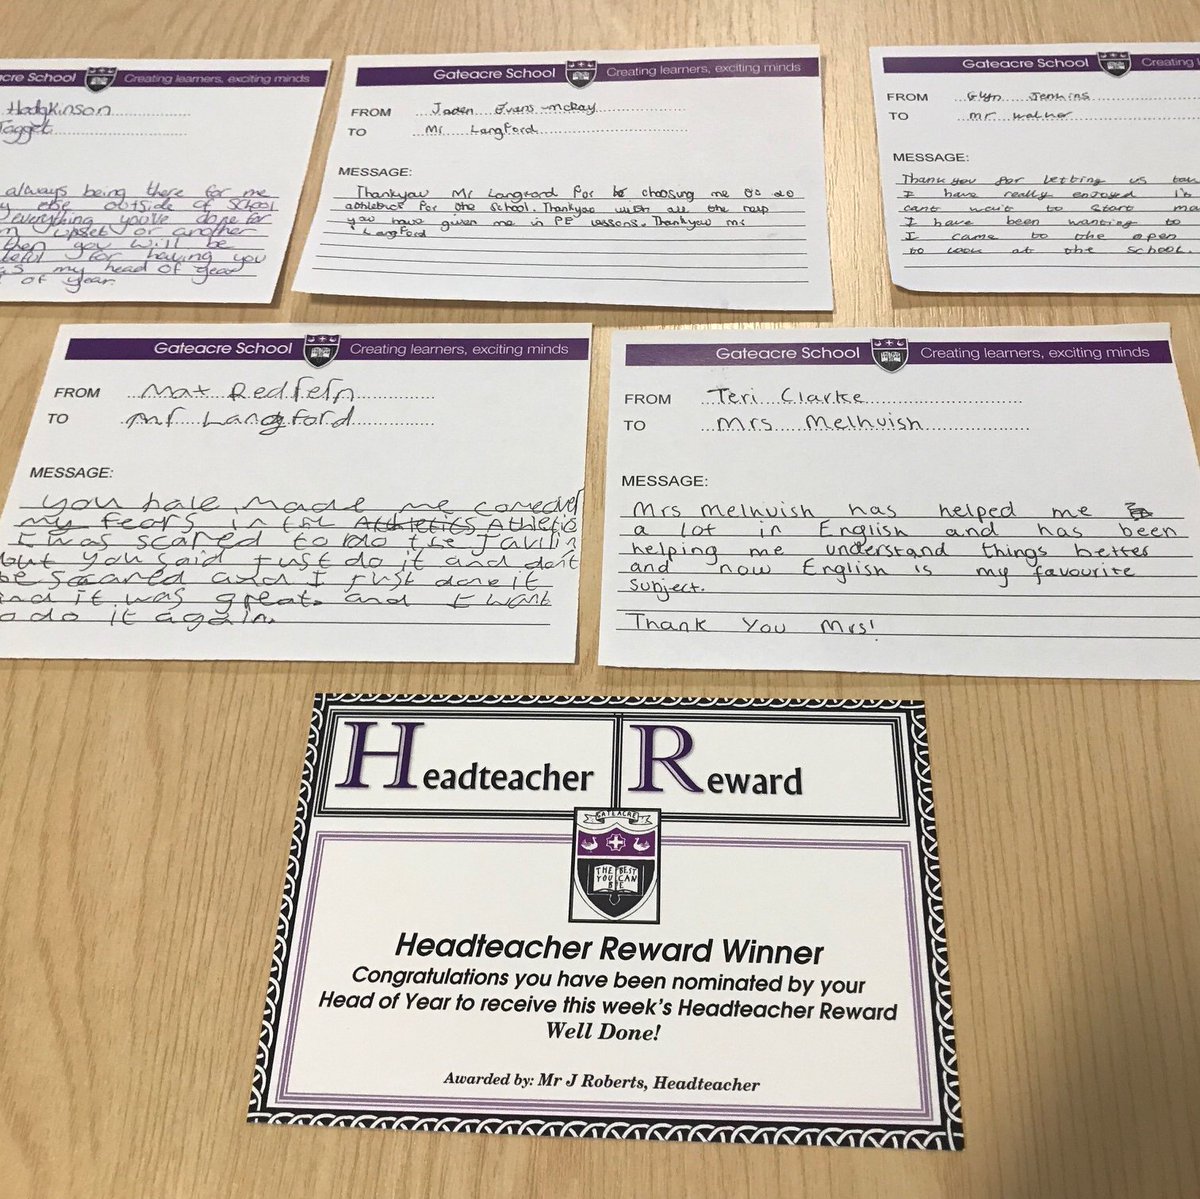 acre School Creating learners, exciting minds
Hodgkinson
Tagget
always being there for me
else outside of School
everything you've done for
upset or another
then you will be
for having you
my head of year
of year.
Gateacre School Creating learners, exciting minds
FROM Jaden Evans-McKay
TO Mr Langford
MESSAGE:
Thankyou Mr Langford for choosing me to do
athletics for the school. Thankyou with all the help
you have given me in PE lessons. Thankyou mr
Langford
Gateacre School Creating
FROM Glyn Jenkins
TO mr walker
MESSAGE:
Thank you for letting us
I have really enjoyed it
cant wait to start
I have been wanting to
I came to the open
to look at the school.
Gateacre School Creating learners, exciting minds
FROM Max Redfern
TO Mr Langford
MESSAGE:
you have made me comeover
my fears in the Athletics Athletic
I was scared to do the Javilin
but you said Just do it and don't
be scared and I Just done it
and it was great and I want
do it again.
Gateacre School Creating learners, exciting minds
FROM Teri Clarke
TO Mrs Melhuish
MESSAGE:
Mrs Melhuish has helped me
a lot in English and has been
helping me understand things better
and now English is my favourite
subject.
Thank You Mrs!
Headteacher Reward
GATEACRE
THE BEST
YOU CAN
BE
Headteacher Reward Winner
Congratulations you have been nominated by your
Head of Year to receive this week's Headteacher Reward
Well Done!
Awarded by: Mr J Roberts, Headteacher